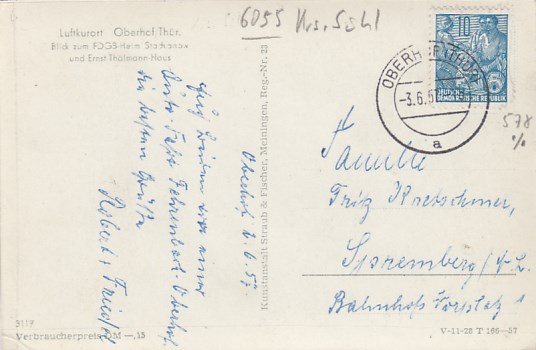 Luftkurort Oberhof, Thür.
Blick zum FDGB-Heim Stachanow
und Ernst-Thälmann-Haus
6055 Krs. Suhl
Oberhof 2.6.57.
die besten Grüße
Robert u. Frieda
Kunstanstalt Straub & Fischer, Meiningen, Reg.-Nr. 23
OBERHOF (THÜR)
-3.6.5
a
10
DEUTSCHE
DEMOKRATISCHE REPUBLIK
578
%
Familie
Fritz Kretschmer
Spremberg / N. L.
Bahnhofs Vorplatz 1
3117
Verbraucherpreis DM —,15
V-11-28 T 166-57